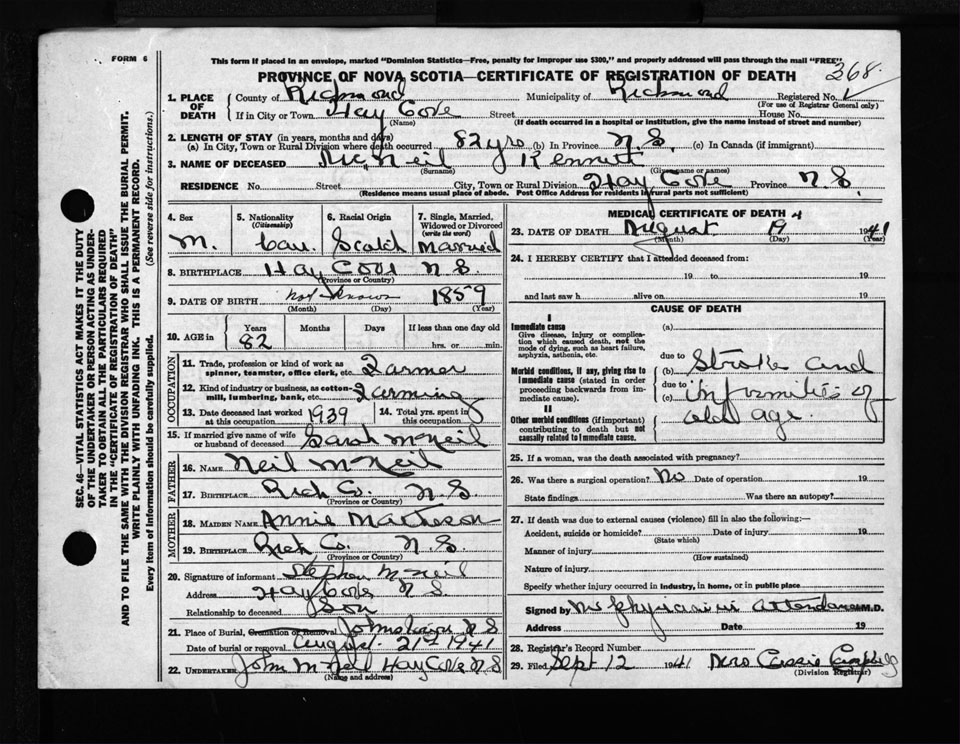 FORM 6
This form if placed in an envelope, marked "Dominion Statistics—Free, penalty for improper use $300," and properly addressed will pass through the mail "FREE"
PROVINCE OF NOVA SCOTIA—CERTIFICATE OF REGISTRATION OF DEATH
368
1. PLACE OF DEATH
County of Richmond Municipality of Richmond Registered No.
(For use of Registrar General only)
If in City or Town Hay Cove Street House No.
(Name) (If death occurred in a hospital or institution, give the name instead of street and number)
2. LENGTH OF STAY (in years, months and days)
(a) In City, Town or Rural Division where death occurred 82 yrs (b) In Province N.S. (c) In Canada (if immigrant)
3. NAME OF DECEASED McNeil Kennett
(Surname) (Given name or names)
RESIDENCE No. Street City, Town or Rural Division Hay Cove Province N.S.
(Residence means usual place of abode. Post Office Address for residents in rural parts not sufficient)
4. Sex
M.
5. Nationality
(Citizenship)
Can.
6. Racial Origin
Scotch
7. Single, Married, Widowed or Divorced
(write the word)
Married
8. BIRTHPLACE Hay Cove N.S.
(Province or Country)
9. DATE OF BIRTH not known 1859
(Month) (Day) (Year)
10. AGE in Years Months Days If less than one day old
82 hrs. or min.
OCCUPATION
11. Trade, profession or kind of work as spinner, teamster, office clerk, etc. Farmer
12. Kind of industry or business, as cotton-mill, lumbering, bank, etc. Farming
13. Date deceased last worked at this occupation 1939
14. Total yrs. spent in this occupation
15. If married give name of wife or husband of deceased Sarah McNeil
FATHER
16. NAME Neil McNeil
17. BIRTHPLACE Rich Co. N.S.
(Province or Country)
MOTHER
18. MAIDEN NAME Annie Matheson
19. BIRTHPLACE Rich Co. N.S.
(Province or Country)
20. Signature of informant Stephen McNeil
Address Hay Cove N.S.
Relationship to deceased Son
21. Place of Burial, Cremation or Removal Johnstown N S
Date of burial or removal August 21st 1941
22. UNDERTAKER John McNeil Hay Cove N S
(Name and address)
MEDICAL CERTIFICATE OF DEATH
23. DATE OF DEATH August 19 1941
(Month) (Day) (Year)
24. I HEREBY CERTIFY that I attended deceased from:
19 to 19
and last saw h alive on 19
CAUSE OF DEATH
I
Immediate cause
Give disease, injury or complication which caused death, not the mode of dying, such as heart failure, asphyxia, asthenia, etc.
(a)
due to
Morbid conditions, if any, giving rise to immediate cause (stated in order proceeding backwards from immediate cause).
(b) Stroke and
due to
(c) infirmities of
old age.
II
Other morbid conditions (if important) contributing to death but not causally related to immediate cause.
25. If a woman, was the death associated with pregnancy?
26. Was there a surgical operation? No Date of operation 19
State findings Was there an autopsy?
27. If death was due to external causes (violence) fill in also the following:—
Accident, suicide or homicide? Date of injury 19
(State which)
Manner of injury
(How sustained)
Nature of injury
Specify whether injury occurred in industry, in home, or in public place
Signed by No physician in attendance M.D.
Address Date 19
28. Registrar's Record Number
29. Filed Sept 12 1941 Mrs Cassie Campbell
(Division Registrar)
SEC. 46—VITAL STATISTICS ACT MAKES IT THE DUTY
OF THE UNDERTAKER OR PERSON ACTING AS UNDER-
TAKER TO OBTAIN ALL THE PARTICULARS REQUIRED
IN THE "CERTIFICATE OF REGISTRATION OF DEATH"
AND TO FILE THE SAME WITH THE DIVISION REGISTRAR WHO SHALL ISSUE THE BURIAL PERMIT.
WRITE PLAINLY WITH UNFADING INK. THIS IS A PERMANENT RECORD.
Every item of Information should be carefully supplied. (See reverse side for instructions.)